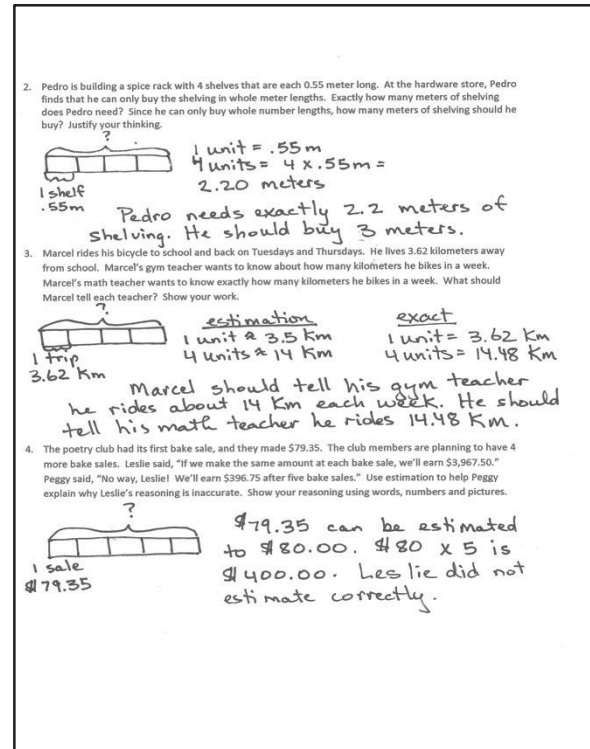 2. Pedro is building a spice rack with 4 shelves that are each 0.55 meter long. At the hardware store, Pedro
finds that he can only buy the shelving in whole meter lengths. Exactly how many meters of shelving
does Pedro need? Since he can only buy whole number lengths, how many meters of shelving should he
buy? Justify your thinking.
?
1 unit = .55m
4 units = 4 x .55m =
2.20 meters
1 shelf
.55m
Pedro needs exactly 2.2 meters of
shelving. He should buy 3 meters.
3. Marcel rides his bicycle to school and back on Tuesdays and Thursdays. He lives 3.62 kilometers away
from school. Marcel's gym teacher wants to know about how many kilometers he bikes in a week.
Marcel's math teacher wants to know exactly how many kilometers he bikes in a week. What should
Marcel tell each teacher? Show your work.
?
1 trip
3.62 Km
estimation
1 unit ≈ 3.5 Km
4 units ≈ 14 Km
exact
1 unit = 3.62 Km
4 units = 14.48 Km
Marcel should tell his gym teacher
he rides about 14 Km each week. He should
tell his math teacher he rides 14.48 Km.
4. The poetry club had its first bake sale, and they made $79.35. The club members are planning to have 4
more bake sales. Leslie said, "If we make the same amount at each bake sale, we'll earn $3,967.50."
Peggy said, "No way, Leslie! We'll earn $396.75 after five bake sales." Use estimation to help Peggy
explain why Leslie's reasoning is inaccurate. Show your reasoning using words, numbers and pictures.
?
1 sale
$79.35
$79.35 can be estimated
to $80.00. $80 x 5 is
$400.00. Leslie did not
estimate correctly.